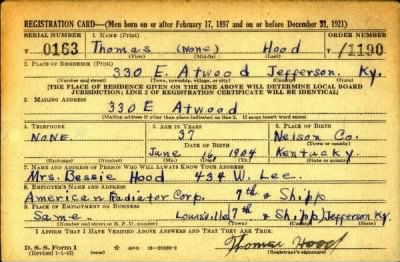 REGISTRATION CARD—(Men born on or after February 17, 1897 and on or before December 31, 1921)
SERIAL NUMBER 1. NAME (Print) ORDER NUMBER
T 0163 Thomas (None) Hood T 11190
(First) (Middle) (Last)
2. PLACE OF RESIDENCE (Print)
330 E. Atwood Jefferson, Ky.
(Number and street) (Town, township, village, or city) (County) (State)
[THE PLACE OF RESIDENCE GIVEN ON THE LINE ABOVE WILL DETERMINE LOCAL BOARD
JURISDICTION; LINE 2 OF REGISTRATION CERTIFICATE WILL BE IDENTICAL]
3. MAILING ADDRESS
330 E Atwood
[Mailing address if other than place indicated on line 2. If same insert word same]
4. TELEPHONE 5. AGE IN YEARS 6. PLACE OF BIRTH
NONE 37 Nelson Co.
DATE OF BIRTH (Town or county)
June 1904 Kentucky
(Exchange) (Number) (Mo.) (Day) (Yr.) (State or country)
7. NAME AND ADDRESS OF PERSON WHO WILL ALWAYS KNOW YOUR ADDRESS
Mrs. Bessie Hood 434 W. Lee.
8. EMPLOYER'S NAME AND ADDRESS
American Radiator Corp. 7th & Shipp
9. PLACE OF EMPLOYMENT OR BUSINESS
Same Louisville 7th & Shipp Jefferson Ky.
(Number and street or R. F. D. number) (Town) (County) (State)
I AFFIRM THAT I HAVE VERIFIED ABOVE ANSWERS AND THAT THEY ARE TRUE.
D. S. S. Form 1 GPO
(Revised 1-1-42) Thomas Hood
(Registrant's signature)